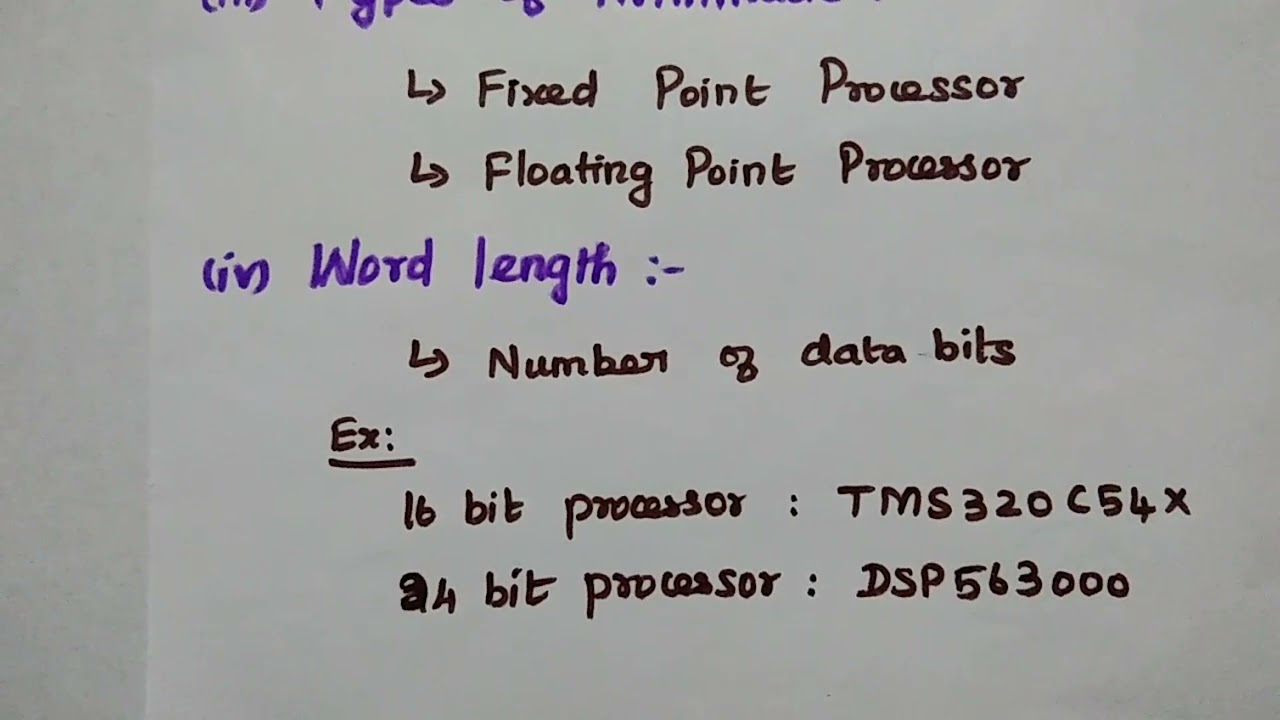 (iii) Types of
↳ Fixed Point Processor
↳ Floating Point Processor
(iv) Word length :-
↳ Number of data bits
Ex:
16 bit processor : TMS320C54X
24 bit processor : DSP563000